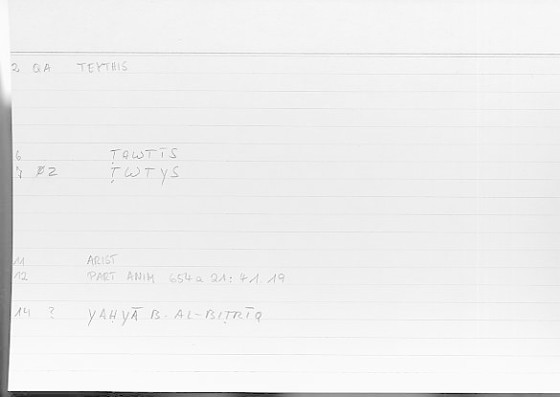 2 QA TEYTHIS
6 ṬAWTĪS
7 Ø2 ṬWTYS
11 ARIST
12 PART ANIM 654a 21: 71.19
14 ? YAḤYĀ B. AL-BIṬRĪQ